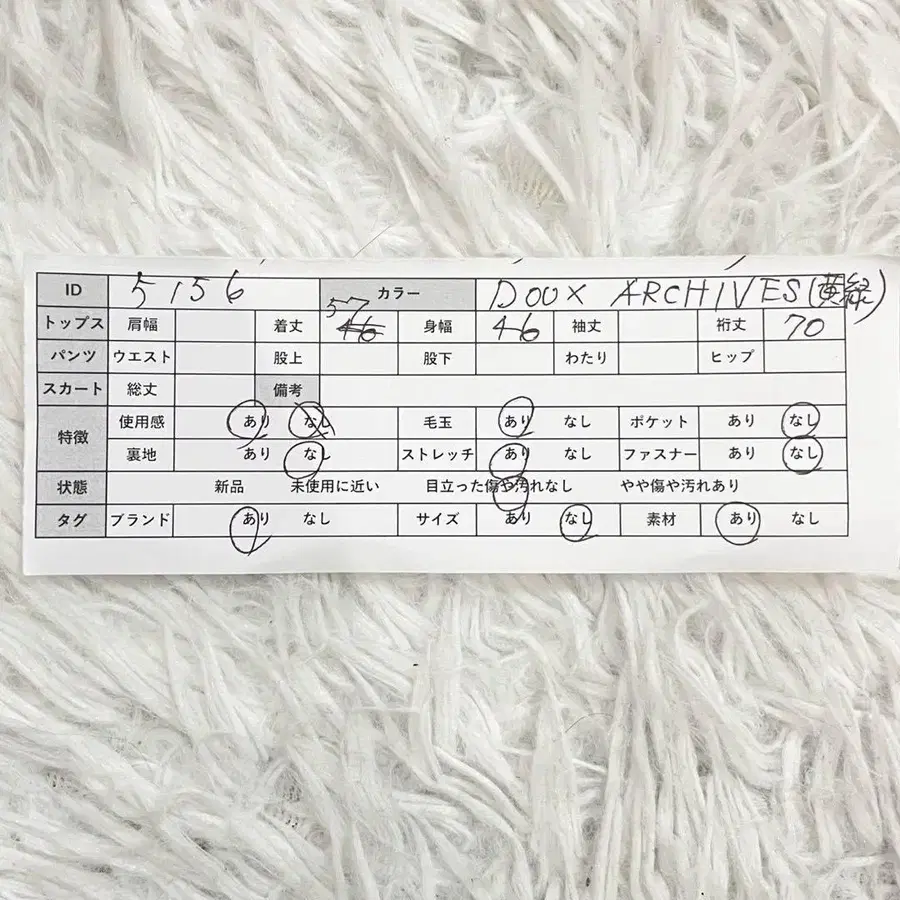 ID 5156 カラー DOUX ARCHIVES(黄緑)
トップス 肩幅 着丈 57 46 身幅 46 袖丈 裄丈 70
パンツ ウエスト 股上 股下 わたり ヒップ
スカート 総丈 備考
特徴 使用感 あり なし 毛玉 あり なし ポケット あり なし
裏地 あり なし ストレッチ あり なし ファスナー あり なし
状態 新品 未使用に近い 目立った傷や汚れなし やや傷や汚れあり
タグ ブランド あり なし サイズ あり なし 素材 あり なし